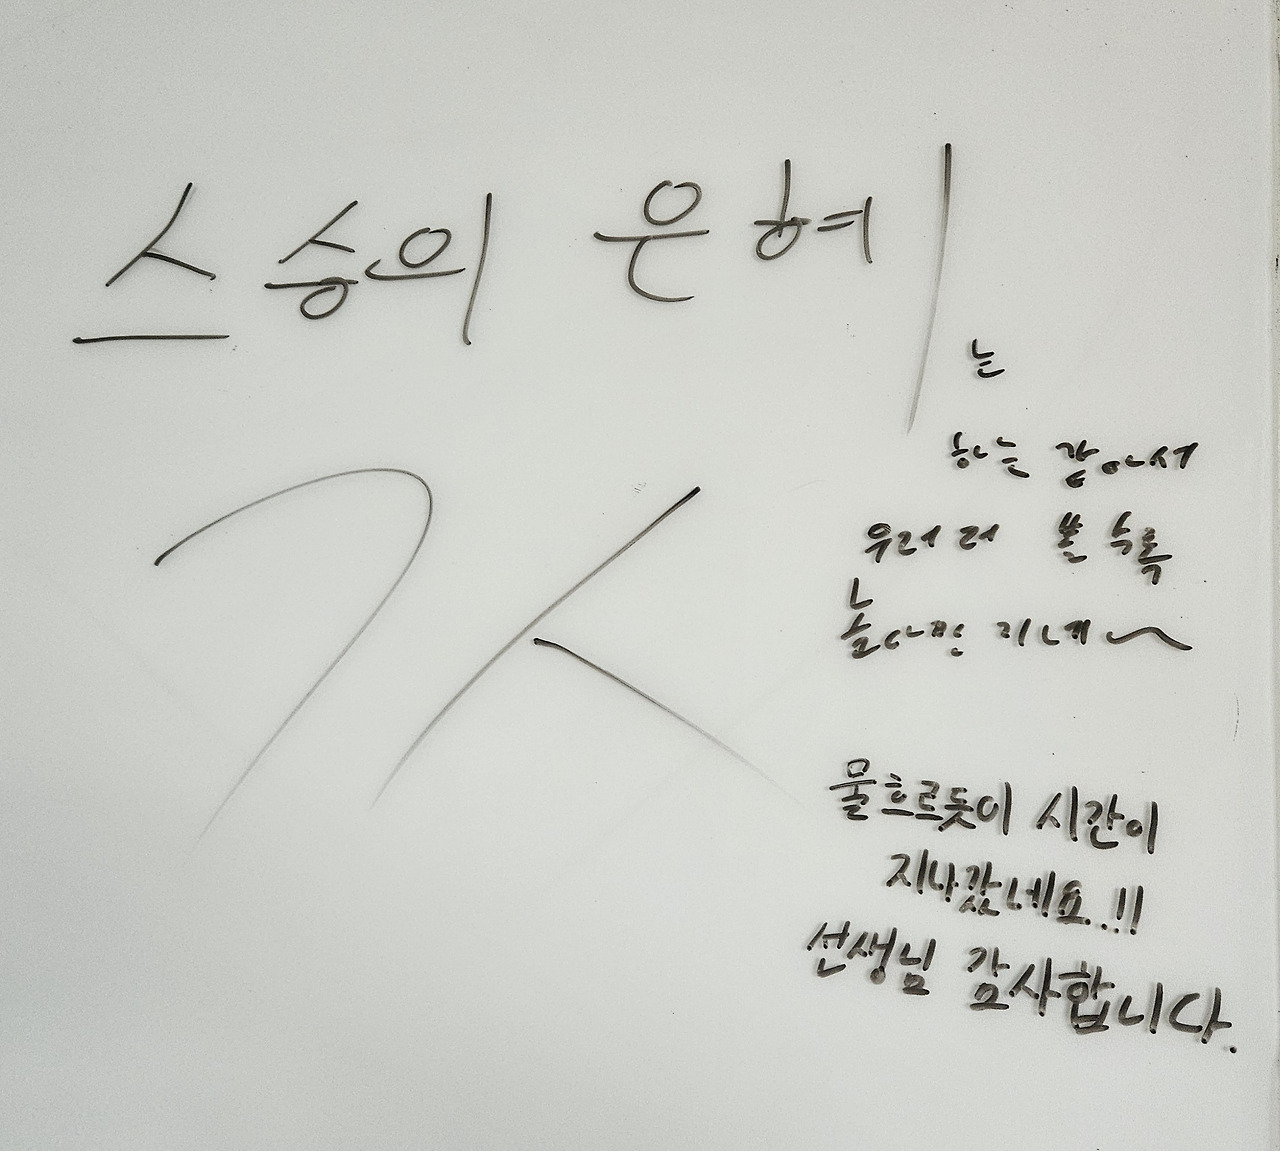 스승의 은혜
는
하는 같아서
우러러 볼수록
높아만 지네~
ㄱㅅ
물흐르듯이 시간이
지나갔네요..!!
선생님 감사합니다.